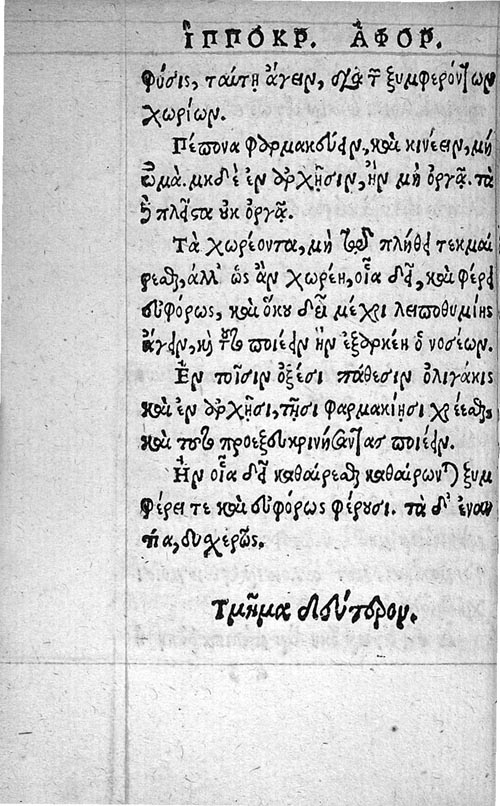 ἹΠΠΟΚΡ. ἈΦΟΡ.
φύσις, ταύτῃ ἄγειν, διὰ τῶν ξυμφερόντων
χωρίων.
Πέπονα φαρμακεύειν, καὶ κινέειν, μὴ
ὠμὰ. μηδὲ ἐν ἀρχῇσιν, ἢν μὴ ὀργᾷ. τὰ
δὲ πλεῖστα οὐκ ὀργᾷ.
Τὰ χωρέοντα, μὴ τῷ πλήθει τεκμαί
ρεσθαι, ἀλλ' ὡς ἂν χωρέῃ, οἷα δεῖ, καὶ φέρει
εὐφόρως, καὶ ὅκου δεῖ μέχρι λειποθυμίης
ἄγειν, καὶ τοῦτο ποιέειν ἢν ἐξαρκέῃ ὁ νοσέων.
Ἐν τοῖσιν ὀξέσι πάθεσιν ὀλιγάκις
καὶ ἐν ἀρχῇσι, τῇσι φαρμακίῃσι χρέεσθαι,
καὶ τοῦτο προεξευκρινήσαντας ποιέειν.
Ἢν οἷα δεῖ καθαίρεσθαι καθαίρωνται ξυμ
φέρει τε καὶ εὐφόρως φέρουσι. τὰ δ' ἐναν
τία, δυχερῶς.
Τμῆμα δεύτερον.